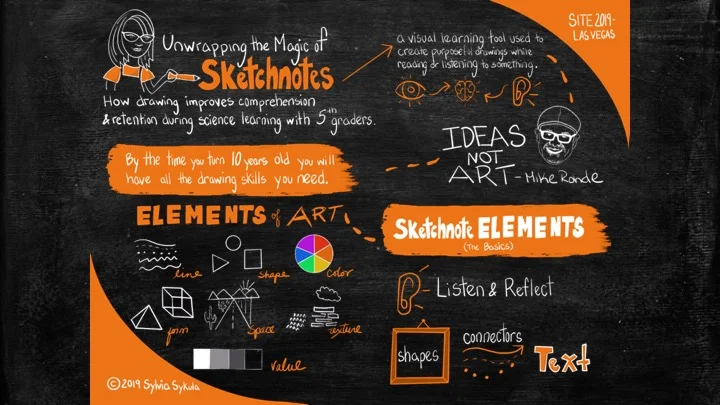 Unwrapping the Magic of
Sketchnotes
How drawing improves comprehension
& retention during science learning with 5th graders.
a visual learning tool used to
create purposeful drawings while
reading or listening to something.
SITE 2019-
LAS VEGAS
IDEAS
NOT
ART - Mike Rohde
By the time you turn 10 years old you will
have all the drawing skills you need.
ELEMENTS of ART
line
shape
color
form
space
texture
value
Sketchnote ELEMENTS
(The Basics)
Listen & Reflect
shapes
connectors
Text
©2019 Sylvia Sykula